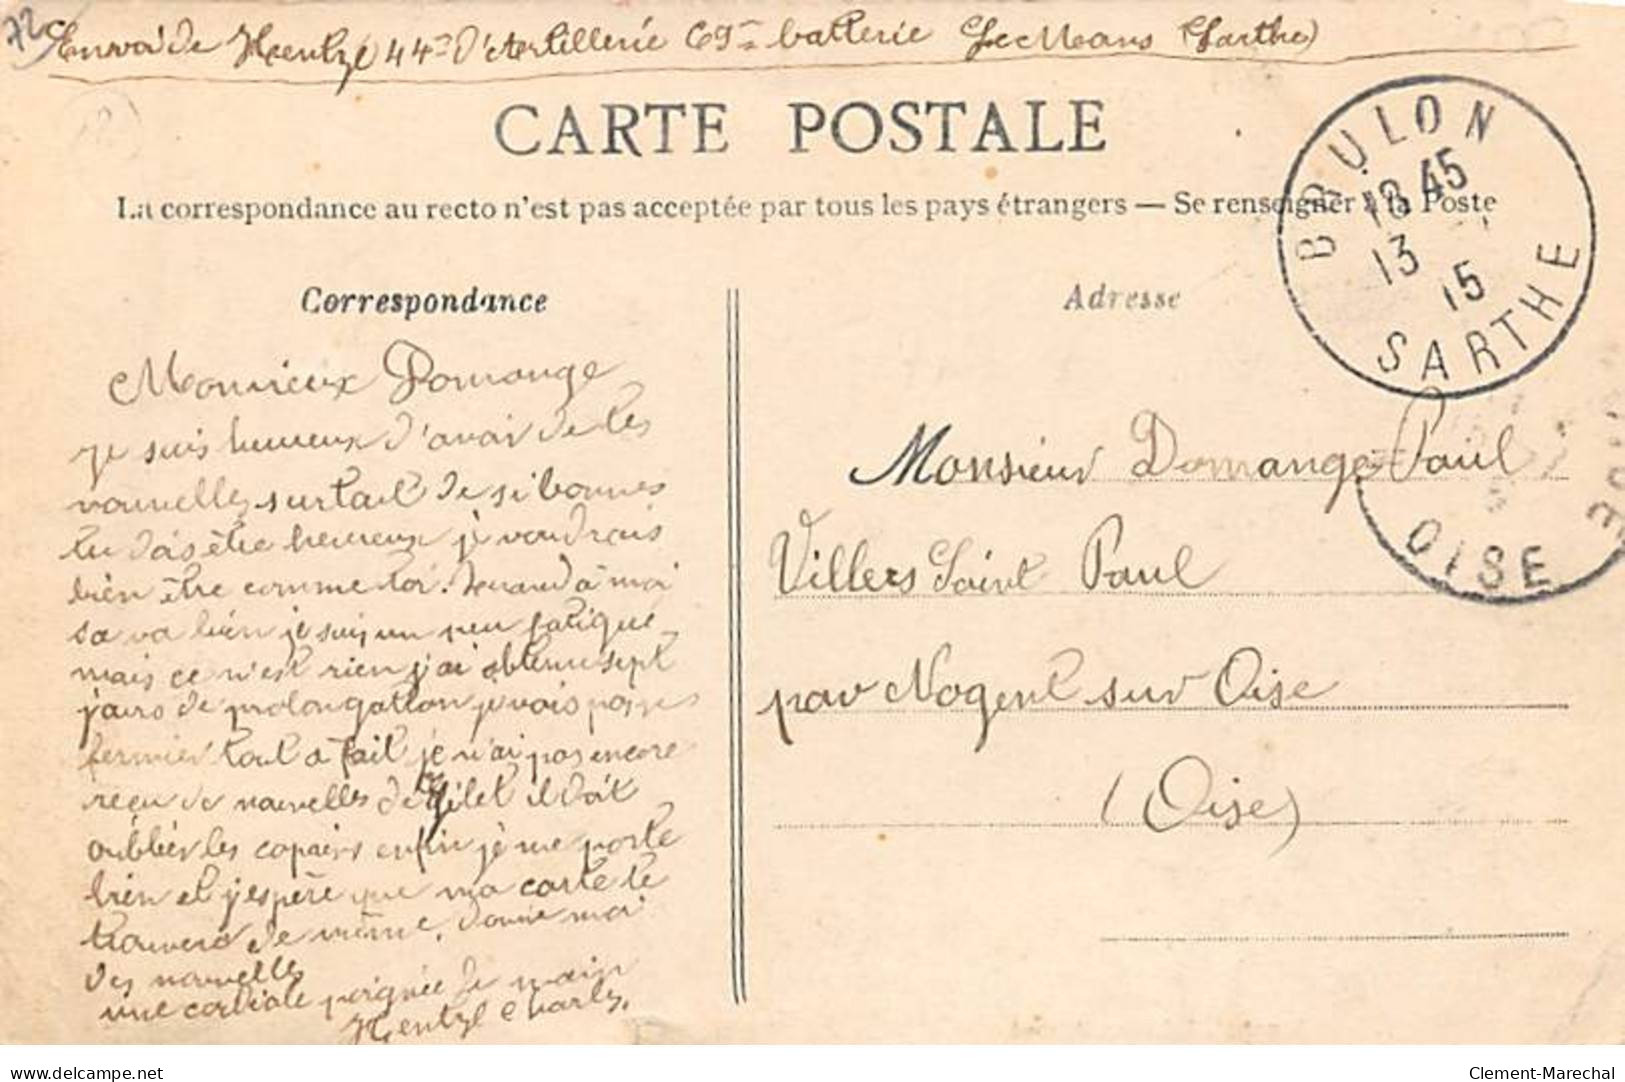 72
Envoi de Hentzé 44me D'Artillerie 69me batterie Le Mans (Sarthe)
CARTE POSTALE
La correspondance au recto n'est pas acceptée par tous les pays étrangers — Se renseigner à la Poste
BRULON
18 45
13 15
SARTHE
Correspondance
Monsieux Domange
je suis heureux d'avoir de tes
nouvelles surtout de si bonnes
tu dois être heureux je voudrais
bien être comme toi. Quand à moi
sa va bien je suis un peu fatigué
mais ce n'est rien j'ai obtenu sept
jours de prolongation je vois pas
fermier tout a fait je n'ai pas encore
reçu de nouvelles de Gilet il doit
oublier les copains enfin je me porte
bien et j'espère que ma carte te
trouvera de même. donne moi
des nouvelles
une cordiale poignée de main
Hentzé Charles.
Adresse
Monsieur Domange Paul
Villers Saint Paul
par Nogent sur Oise
(Oise)
OISE
delcampe.net
Clement-Marechal